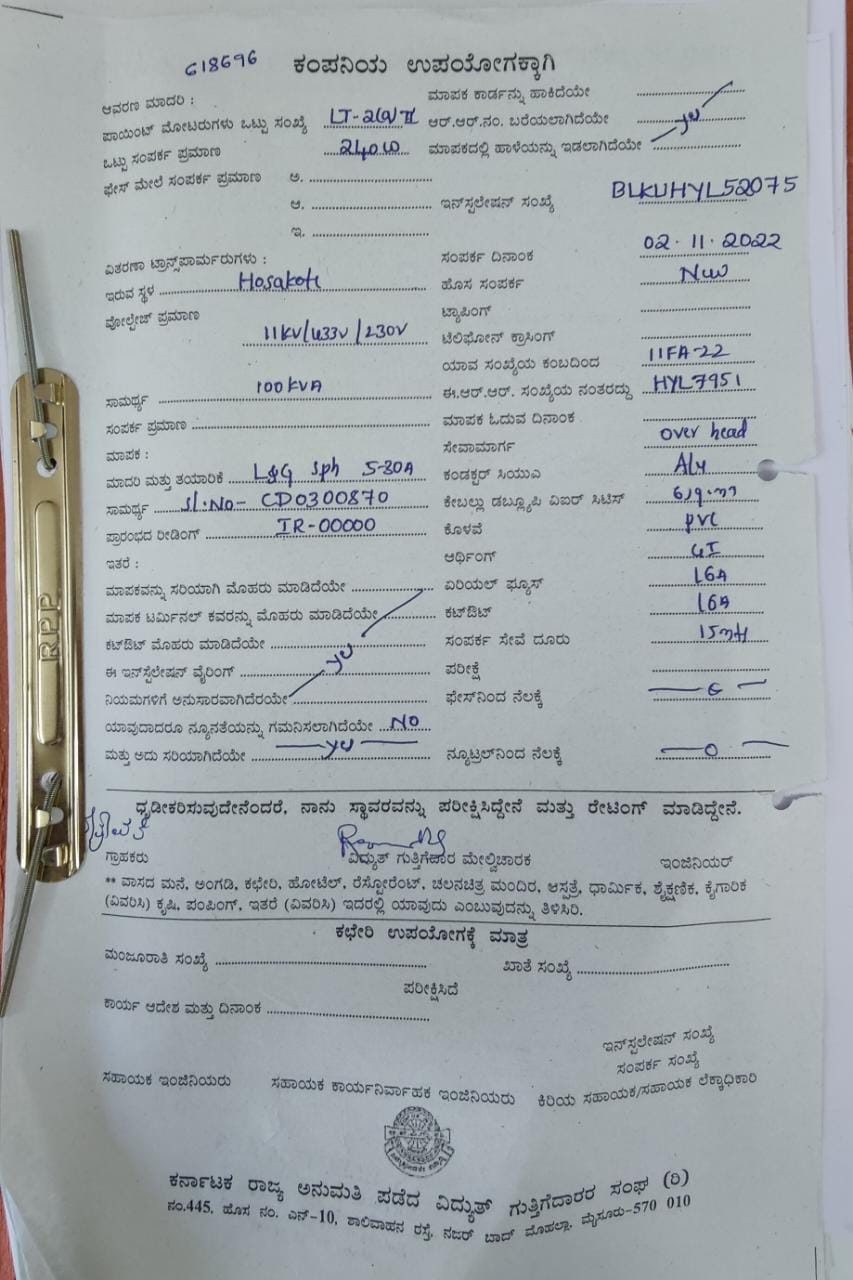 G18696 ಕಂಪನಿಯ ಉಪಯೋಗಕ್ಕಾಗಿ
ಆವರಣ ಮಾದರಿ :
ಪಾಯಿಂಟ್ ಮೋಟರುಗಳು ಒಟ್ಟು ಸಂಖ್ಯೆ LT-2(a)II
ಒಟ್ಟು ಸಂಪರ್ಕ ಪ್ರಮಾಣ 240W
ಫೇಸ್ ಮೇಲೆ ಸಂಪರ್ಕ ಪ್ರಮಾಣ ಅ.
ಆ.
ಇ.
ವಿತರಣಾ ಟ್ರಾನ್ಸ್‌ಪಾರ್ಮರುಗಳು :
ಇರುವ ಸ್ಥಳ Hosakote
ವೋಲ್ಟೇಜ್ ಪ್ರಮಾಣ
11KV/433V/230V
ಸಾಮರ್ಥ್ಯ 100KVA
ಸಂಪರ್ಕ ಪ್ರಮಾಣ
ಮಾಪಕ :
ಮಾದರಿ ಮತ್ತು ತಯಾರಿಕೆ L&G Sph 5-30A
ಸಾಮರ್ಥ್ಯ Sl.No- CD0300870
ಪ್ರಾರಂಭದ ರೀಡಿಂಗ್ IR-00000
ಇತರೆ :
ಮಾಪಕವನ್ನು ಸರಿಯಾಗಿ ಮೊಹರು ಮಾಡಿದೆಯೇ
ಮಾಪಕ ಟರ್ಮಿನಲ್ ಕವರನ್ನು ಮೊಹರು ಮಾಡಿದೆಯೇ
ಕಟ್‌ಔಟ್ ಮೊಹರು ಮಾಡಿದೆಯೇ
ಈ ಇನ್‌ಸ್ಟಲೇಷನ್ ವೈರಿಂಗ್ yes
ನಿಯಮಗಳಿಗೆ ಅನುಸಾರವಾಗಿದೆರಯೇ
ಯಾವುದಾದರೂ ನ್ಯೂನತೆಯನ್ನು ಗಮನಿಸಲಾಗಿದೆಯೇ NO
ಮತ್ತು ಅದು ಸರಿಯಾಗಿದೆಯೇ yes
ಮಾಪಕ ಕಾರ್ಡನ್ನು ಹಾಕಿದೆಯೇ
ಆರ್.ಆರ್.ನಂ. ಬರೆಯಲಾಗಿದೆಯೇ yes
ಮಾಪಕದಲ್ಲಿ ಹಾಳೆಯನ್ನು ಇಡಲಾಗಿದೆಯೇ
ಇನ್‌ಸ್ಪಲೇಷನ್ ಸಂಖ್ಯೆ BLKUHYL52075
ಸಂಪರ್ಕ ದಿನಾಂಕ 02.11.2022
ಹೊಸ ಸಂಪರ್ಕ New
ಟ್ಯಾಪಿಂಗ್
ಟೆಲಿಫೋನ್ ಕ್ರಾಸಿಂಗ್
ಯಾವ ಸಂಖ್ಯೆಯ ಕಂಬದಿಂದ 11FA-22
ಈ.ಆರ್.ಆರ್. ಸಂಖ್ಯೆಯ ನಂತರದ್ದು HYL7951
ಮಾಪಕ ಓದುವ ದಿನಾಂಕ
ಸೇವಾಮಾರ್ಗ over head
ಕಂಡಕ್ಟರ್ ಸಿಯುಎ Aly
ಕೇಬಲ್ಲು ಡಬ್ಲ್ಯೂಪಿ ವಿಐರ್ ಸಿಟಿಸ್
ಕೊಳವೆ pvc
ಆರ್ಥಿಂಗ್ GI
ಏರಿಯಲ್ ಫ್ಯೂಸ್ 16A
ಕಟ್‌ಔಟ್ 16A
ಸಂಪರ್ಕ ಸೇವೆ ದೂರು 15mt
ಪರೀಕ್ಷೆ
ಫೇಸ್‌ನಿಂದ ನೆಲಕ್ಕೆ
ನ್ಯೂಟ್ರಲ್‌ನಿಂದ ನೆಲಕ್ಕೆ — 0 —
ಧೃಡೀಕರಿಸುವುದೇನೆಂದರೆ, ನಾನು ಸ್ಥಾವರವನ್ನು ಪರೀಕ್ಷಿಸಿದ್ದೇನೆ ಮತ್ತು ರೇಟಿಂಗ್ ಮಾಡಿದ್ದೇನೆ.
ಗ್ರಾಹಕರು ವಿದ್ಯುತ್ ಗುತ್ತಿಗೆದಾರ ಮೇಲ್ವಿಚಾರಕ ಇಂಜಿನಿಯರ್
** ವಾಸದ ಮನೆ, ಅಂಗಡಿ, ಕಛೇರಿ, ಹೋಟೆಲ್, ರೆಸ್ಟೋರೆಂಟ್, ಚಲನಚಿತ್ರ ಮಂದಿರ, ಆಸ್ಪತ್ರೆ, ಧಾರ್ಮಿಕ, ಶೈಕ್ಷಣಿಕ, ಕೈಗಾರಿಕ
(ವಿವರಿಸಿ) ಕೃಷಿ, ಪಂಪಿಂಗ್, ಇತರೆ (ವಿವರಿಸಿ) ಇದರಲ್ಲಿ ಯಾವುದು ಎಂಬುವುದನ್ನು ತಿಳಿಸಿರಿ.
ಕಛೇರಿ ಉಪಯೋಗಕ್ಕೆ ಮಾತ್ರ
ಮಂಜೂರಾತಿ ಸಂಖ್ಯೆ ಖಾತೆ ಸಂಖ್ಯೆ
ಪರೀಕ್ಷಿಸಿದೆ
ಕಾರ್ಯ ಆದೇಶ ಮತ್ತು ದಿನಾಂಕ
ಇನ್‌ಸ್ಪಲೇಷನ್ ಸಂಖ್ಯೆ
ಸಂಪರ್ಕ ಸಂಖ್ಯೆ
ಸಹಾಯಕ ಇಂಜಿನಿಯರು ಸಹಾಯಕ ಕಾರ್ಯನಿರ್ವಾಹಕ ಇಂಜಿನಿಯರು ಕಿರಿಯ ಸಹಾಯಕ/ಸಹಾಯಕ ಲೆಕ್ಕಾಧಿಕಾರಿ
ಕರ್ನಾಟಕ ರಾಜ್ಯ ಅನುಮತಿ ಪಡೆದ ವಿದ್ಯುತ್ ಗುತ್ತಿಗೆದಾರರ ಸಂಘ (ರಿ)
ನಂ.445, ಹೊಸ ನಂ. ಎನ್-10, ಶಾಲಿವಾಹನ ರಸ್ತೆ, ನಜರ್ ಬಾದ್ ಮೊಹಲ್ಲಾ, ಮೈಸೂರು-570 010